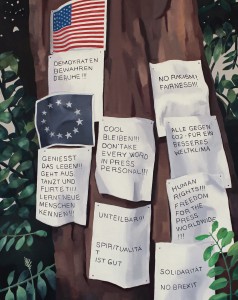 DEMOKRATEN
BEWAHREN
DIE RUHE!!!
NO RACISM!
FAIRNESS!!!
COOL
BLEIBEN!!!
DON'T TAKE
EVERY WORD
IN PRESS
PERSONAL!!!
ALLE GEGEN
CO2-FÜR EIN
BESSERES
WELTKLIMA
GENIESST
DAS LEBEN!!!
GEHT AUS,
TANZT UND
FLIRTET!!!
LERNT NEUE
MENSCHEN
KENNEN!!!
HUMAN
RIGHTS!!!
FREEDOM
FOR THE
PRESS
WORLDWIDE
!!!
UNTEILBAR!!!
SPIRITUALITÄ
T
IST GUT
SOLIDARITÄT
NO BREXIT